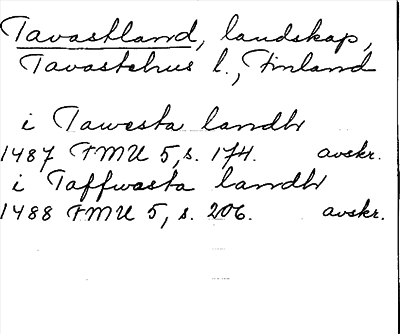 Tavastland, landskap,
Tavastehus l., Finland
i Tawesta landh
1487 FMU 5, s. 174. avskr.
i Taffwasta landh
1488 FMU 5, s. 206. avskr.